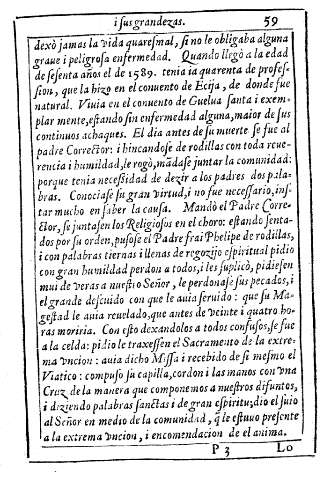 i sus grandezas. 59
dexò jamas la vida quaresmal, si no le obligaba alguna
graue i peligrosa enfermedad. Quando llegò a la edad
de sesenta años el de 1589. tenia ia quarenta de profes-
sion, que la hizo en el conuento de Ecija, de donde fue
natural. Viuia en el conuento de Guelua santa i exem-
plar mente, estando sin enfermedad alguna, maior de sus
continuos achaques. El dia antes de su muerte se fue al
padre Corrector: i hincandose de rodillas con toda reue-
rencia i humildad, le rogò, mãdase juntar la comunidad:
porque tenia necessidad de dezir a los padres dos pala-
bras. Conociase su gran virtud, i no fue necessario, ins-
tar mucho en saber la causa. Mandò el Padre Corre-
ctor, se juntasen los Religiosos en el choro: estando senta-
dos por su orden, pusose el Padre frai Phelipe de rodillas,
i con palabras tiernas i llenas de regozijo espiritual pidio
con gran humildad perdon a todos, i les suplicò, pidiesen
mui de veras a nuestro Señor, le perdonase sus pecados, i
el grande descuido con que le auia seruido: que su Ma-
gestad le auia reuelado, que antes de veinte i quatro ho-
ras moriria. Con esto dexandolos a todos confusos, se fue
a la celda: pidio le traxessen el Sacramento de la extre-
ma vncion: auia dicho Missa i recebido de si mesmo el
Viatico: compuso su capilla, cordon i las manos con vna
Cruz de la manera que componemos a nuestros difuntos,
i diziendo palabras sanctas i de gran espiritu; dio el suio
al Señor en medio de la comunidad, q̃ le estuuo presente
a la extrema vncion, i encomendacion de el anima.
P 3 Lo